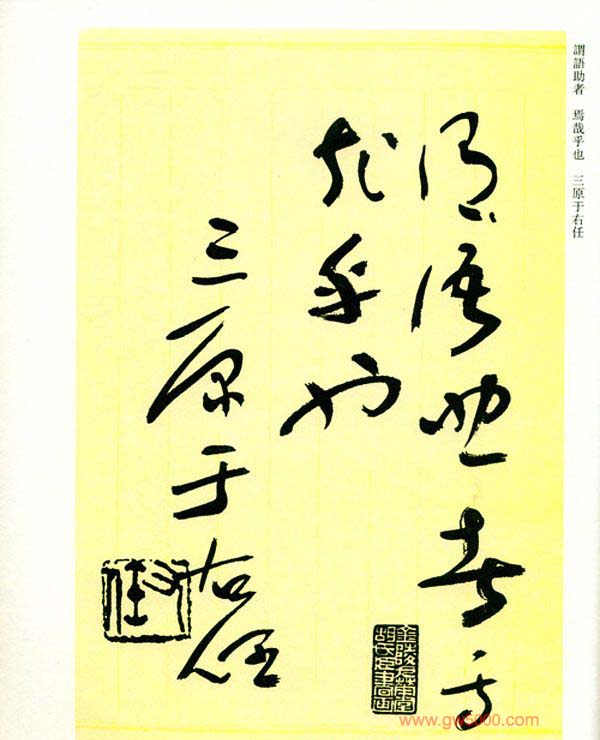 謂語助者 焉哉乎也 三原于右任
謂語助者焉
哉乎也
三原于右任
右任
www.gw5000.com